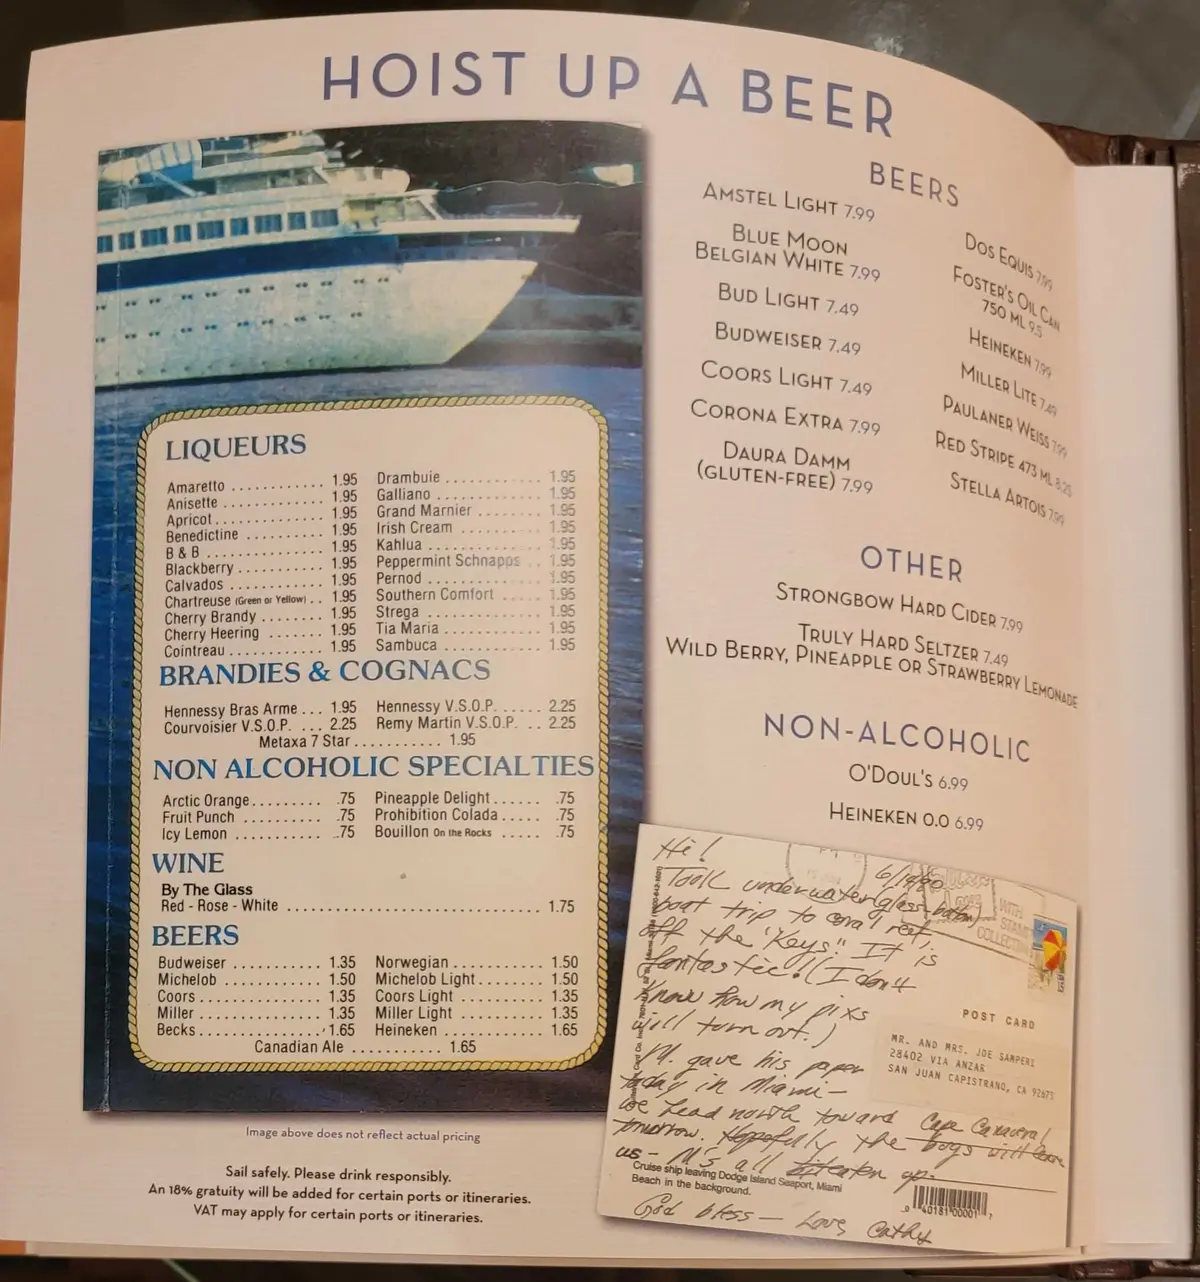 HOIST UP A BEER
LIQUEURS
Amaretto ........... 1.95
Anisette ........... 1.95
Apricot ........... 1.95
Benedictine ......... 1.95
B & B ............. 1.95
Blackberry .......... 1.95
Calvados ........... 1.95
Chartreuse (Green or Yellow) .. 1.95
Cherry Brandy ....... 1.95
Cherry Heering ....... 1.95
Cointreau ........... 1.95
Drambuie ........... 1.95
Galliano ............ 1.95
Grand Marnier ....... 1.95
Irish Cream .......... 1.95
Kahlua ............. 1.95
Peppermint Schnapps .. 1.95
Pernod ............. 1.95
Southern Comfort ..... 1.95
Strega ............. 1.95
Tia Maria ........... 1.95
Sambuca ........... 1.95
BRANDIES & COGNACS
Hennessy Bras Arme ... 1.95
Courvoisier V.S.O.P. ... 2.25
Hennessy V.S.O.P. ..... 2.25
Remy Martin V.S.O.P. .. 2.25
Metaxa 7 Star .......... 1.95
NON ALCOHOLIC SPECIALTIES
Arctic Orange ......... .75
Fruit Punch .......... .75
Icy Lemon ........... .75
Pineapple Delight ...... .75
Prohibition Colada ..... .75
Bouillon On the Rocks ..... .75
WINE
By The Glass
Red - Rose - White .............................. 1.75
BEERS
Budweiser ........... 1.35
Michelob ............ 1.50
Coors .............. 1.35
Miller .............. 1.35
Becks .............. 1.65
Norwegian ........... 1.50
Michelob Light ........ 1.50
Coors Light .......... 1.35
Miller Light .......... 1.35
Heineken ............ 1.65
Canadian Ale ........... 1.65
Image above does not reflect actual pricing
Sail safely. Please drink responsibly.
An 18% gratuity will be added for certain ports or itineraries.
VAT may apply for certain ports or itineraries.
BEERS
AMSTEL LIGHT 7.99
BLUE MOON
BELGIAN WHITE 7.99
BUD LIGHT 7.49
BUDWEISER 7.49
COORS LIGHT 7.49
CORONA EXTRA 7.99
DAURA DAMM
(GLUTEN-FREE) 7.99
DOS EQUIS 7.99
FOSTER'S OIL CAN
750 ML 9.5
HEINEKEN 7.99
MILLER LITE 7.49
PAULANER WEISS 7.99
RED STRIPE 473 ML 8.25
STELLA ARTOIS 7.99
OTHER
STRONGBOW HARD CIDER 7.99
TRULY HARD SELTZER 7.49
WILD BERRY, PINEAPPLE OR STRAWBERRY LEMONADE
NON-ALCOHOLIC
O'DOUL'S 6.99
HEINEKEN 0.0 6.99
Hi!
6/19/80
Took underwater (glass bottom)
boat trip to coral reef,
off the "Keys." It is
fantastic! (I don't
know how my pixs
will turn out.)
M. gave his paper
today in Miami -
we head north toward Cape Canaveral
tomorrow. Hopefully the boys will leave
us - M's all eaten up.
God bless - Love Cathy
WITH
STAMP
COLLECTING
POST CARD
MR. AND MRS. JOE SAMPERE
28402 VIA ANZAR
SAN JUAN CAPISTRANO, CA 92675
Cruise ship leaving Dodge Island Seaport, Miami
Beach in the background.
0 40181 00001